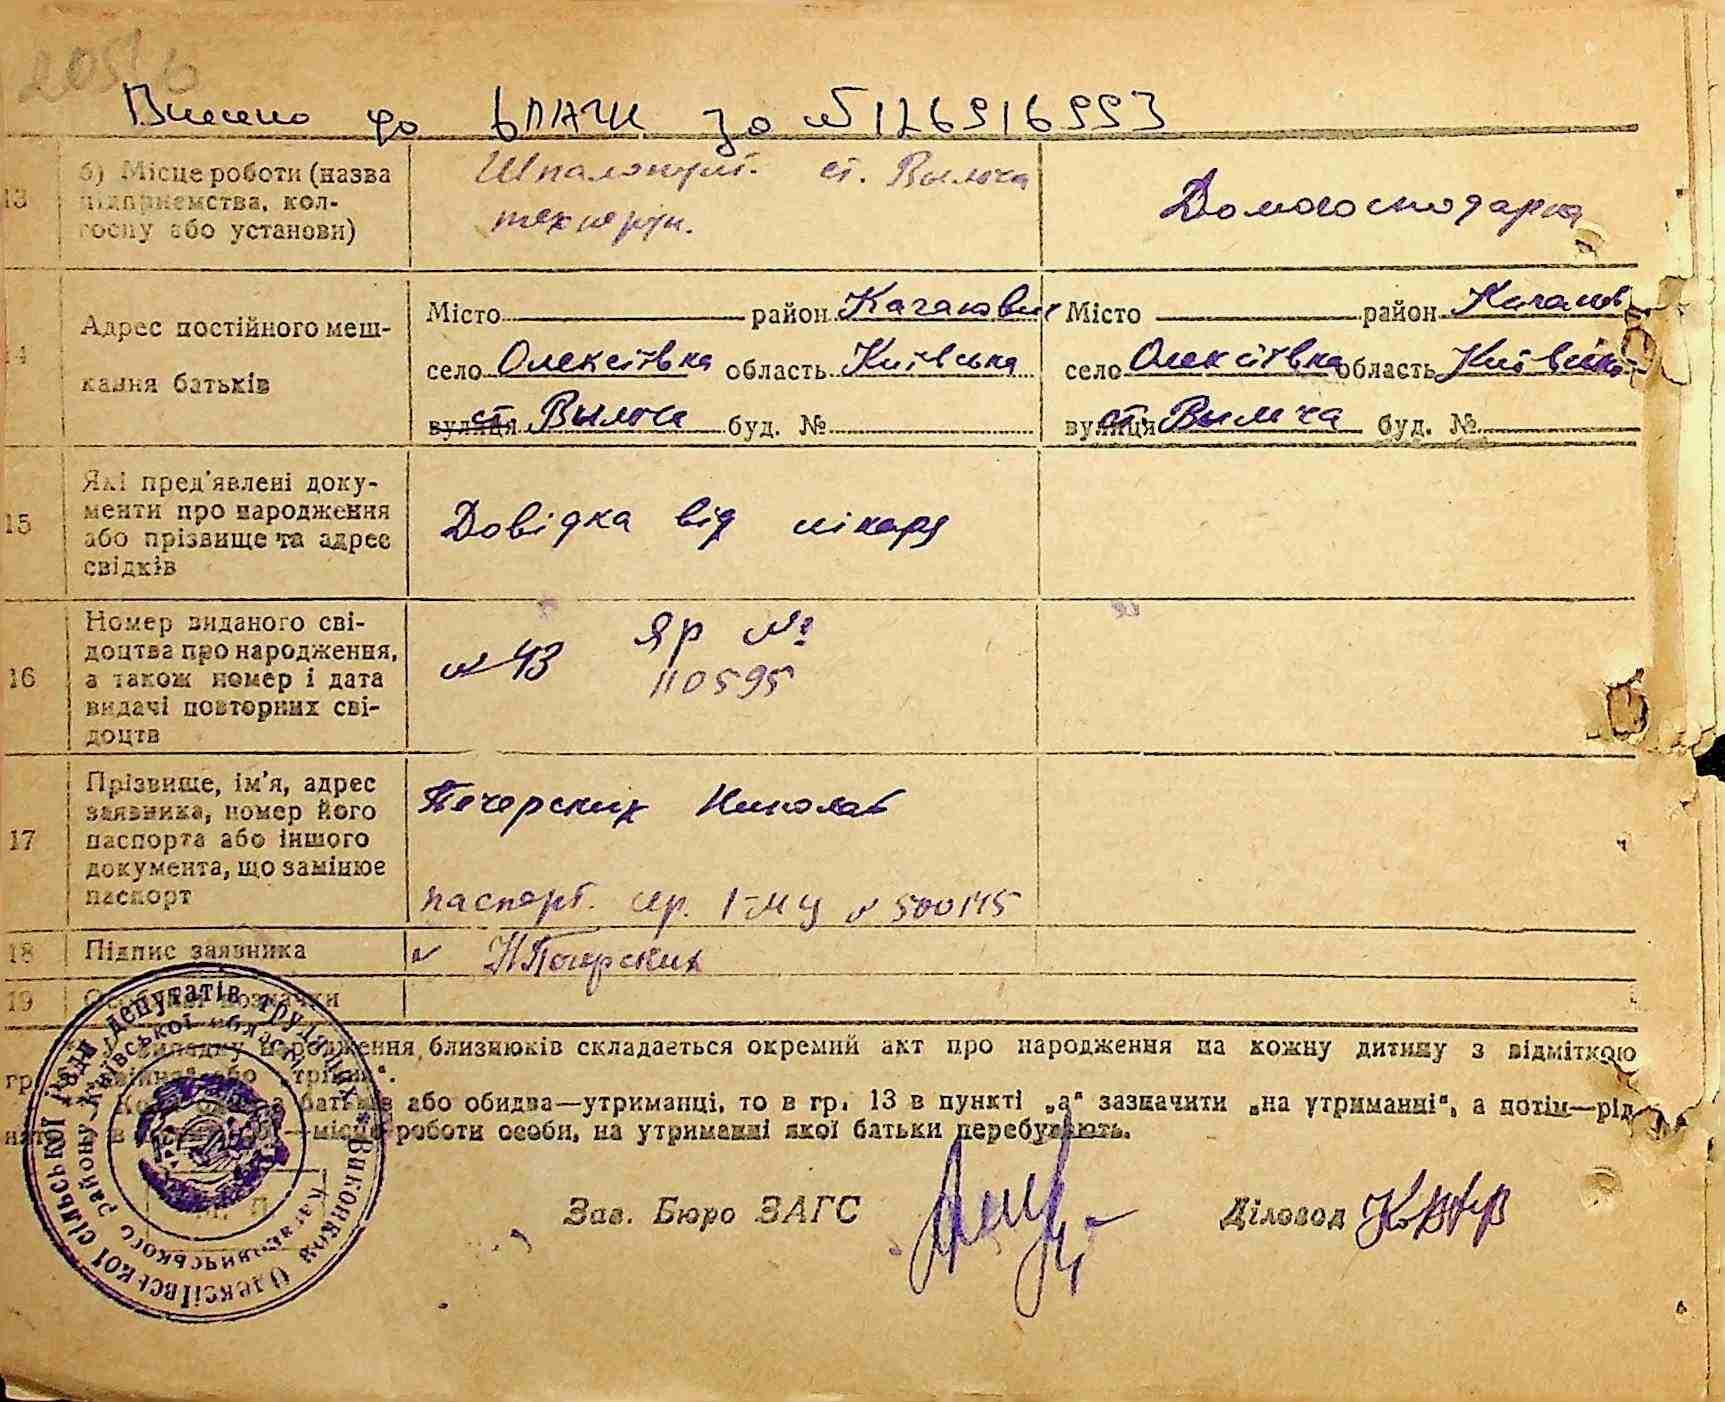 2056
Внесено до ВПАЧИ за №126916993
13 б) Місце роботи (назва підприємства, колгоспу або установи)
ст. Вильча
Домогосподарка
14 Адрес постійного мешкання батьків
Місто район Каганович
село Олексіївка область Київська
вулиця ст. Вильча буд. №
Місто район Каганов
село Олексіївка область Київська
вулиця ст. Вильча буд. №
15 Які пред'явлені документи про народження або прізвище та адрес свідків
Довідка від лікаря
16 Номер виданого свідоцтва про народження, а також номер і дата видачі повторних свідоцтв
№ 43 ЯР №
110595
17 Прізвище, ім'я, адрес заявника, номер його паспорта або іншого документа, що замінює паспорт
Печерских Николай
паспорт. сер. І-МЦ № 500145
18 Підпис заявника
Н Печерских
19 Особливі позначки
випадку народження близнюків складається окремий акт про народження на кожну дитину з відміткою
гр. „двійня" або „трійня".
батьків або обидва—утриманці, то в гр. 13 в пункті „а" зазначити „на утриманні", а потім—
місце роботи особи, на утриманні якої батьки перебувають.
Зав. Бюро ЗАГС
Діловод
Виконком Олексіївської сільської Ради депутатів трудящих
Кагановичського району Київської області
М. П.